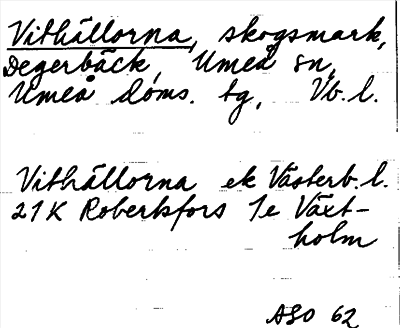 Vithällorna, skogsmark,
Degerbäck, Umeå sn,
Umeå doms. tg, Vb. l.
Vithällorna ek Västerb. l.
21K Robertsfors 1e Växt-
holm
ASO 62